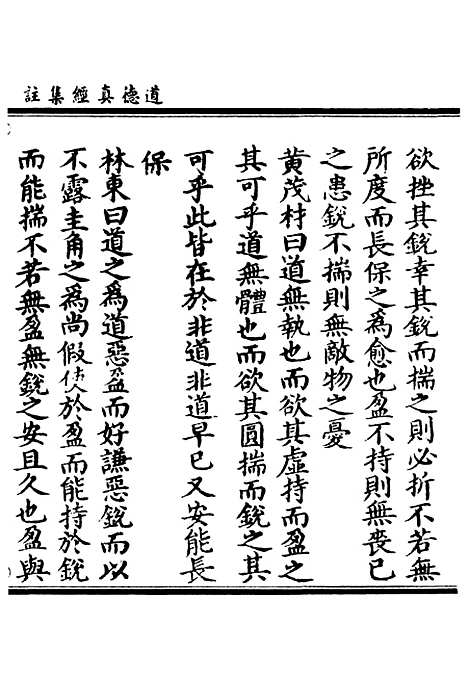 道德真經集註
欲挫其銳幸其銳而揣之則必折不若無
所度而長保之為愈也盈不持則無喪已
之患銳不揣則無敵物之憂
黄茂材曰道無執也而欲其虛持而盈之
其可乎道無體也而欲其圓揣而銳之其
可乎此皆在於非道非道早已又安能長
保
林東曰道之為道惡盈而好謙惡銳而以
不露圭角之爲尚假使於盈而能持於銳
而能揣不若無盈無銳之安且久也盈與